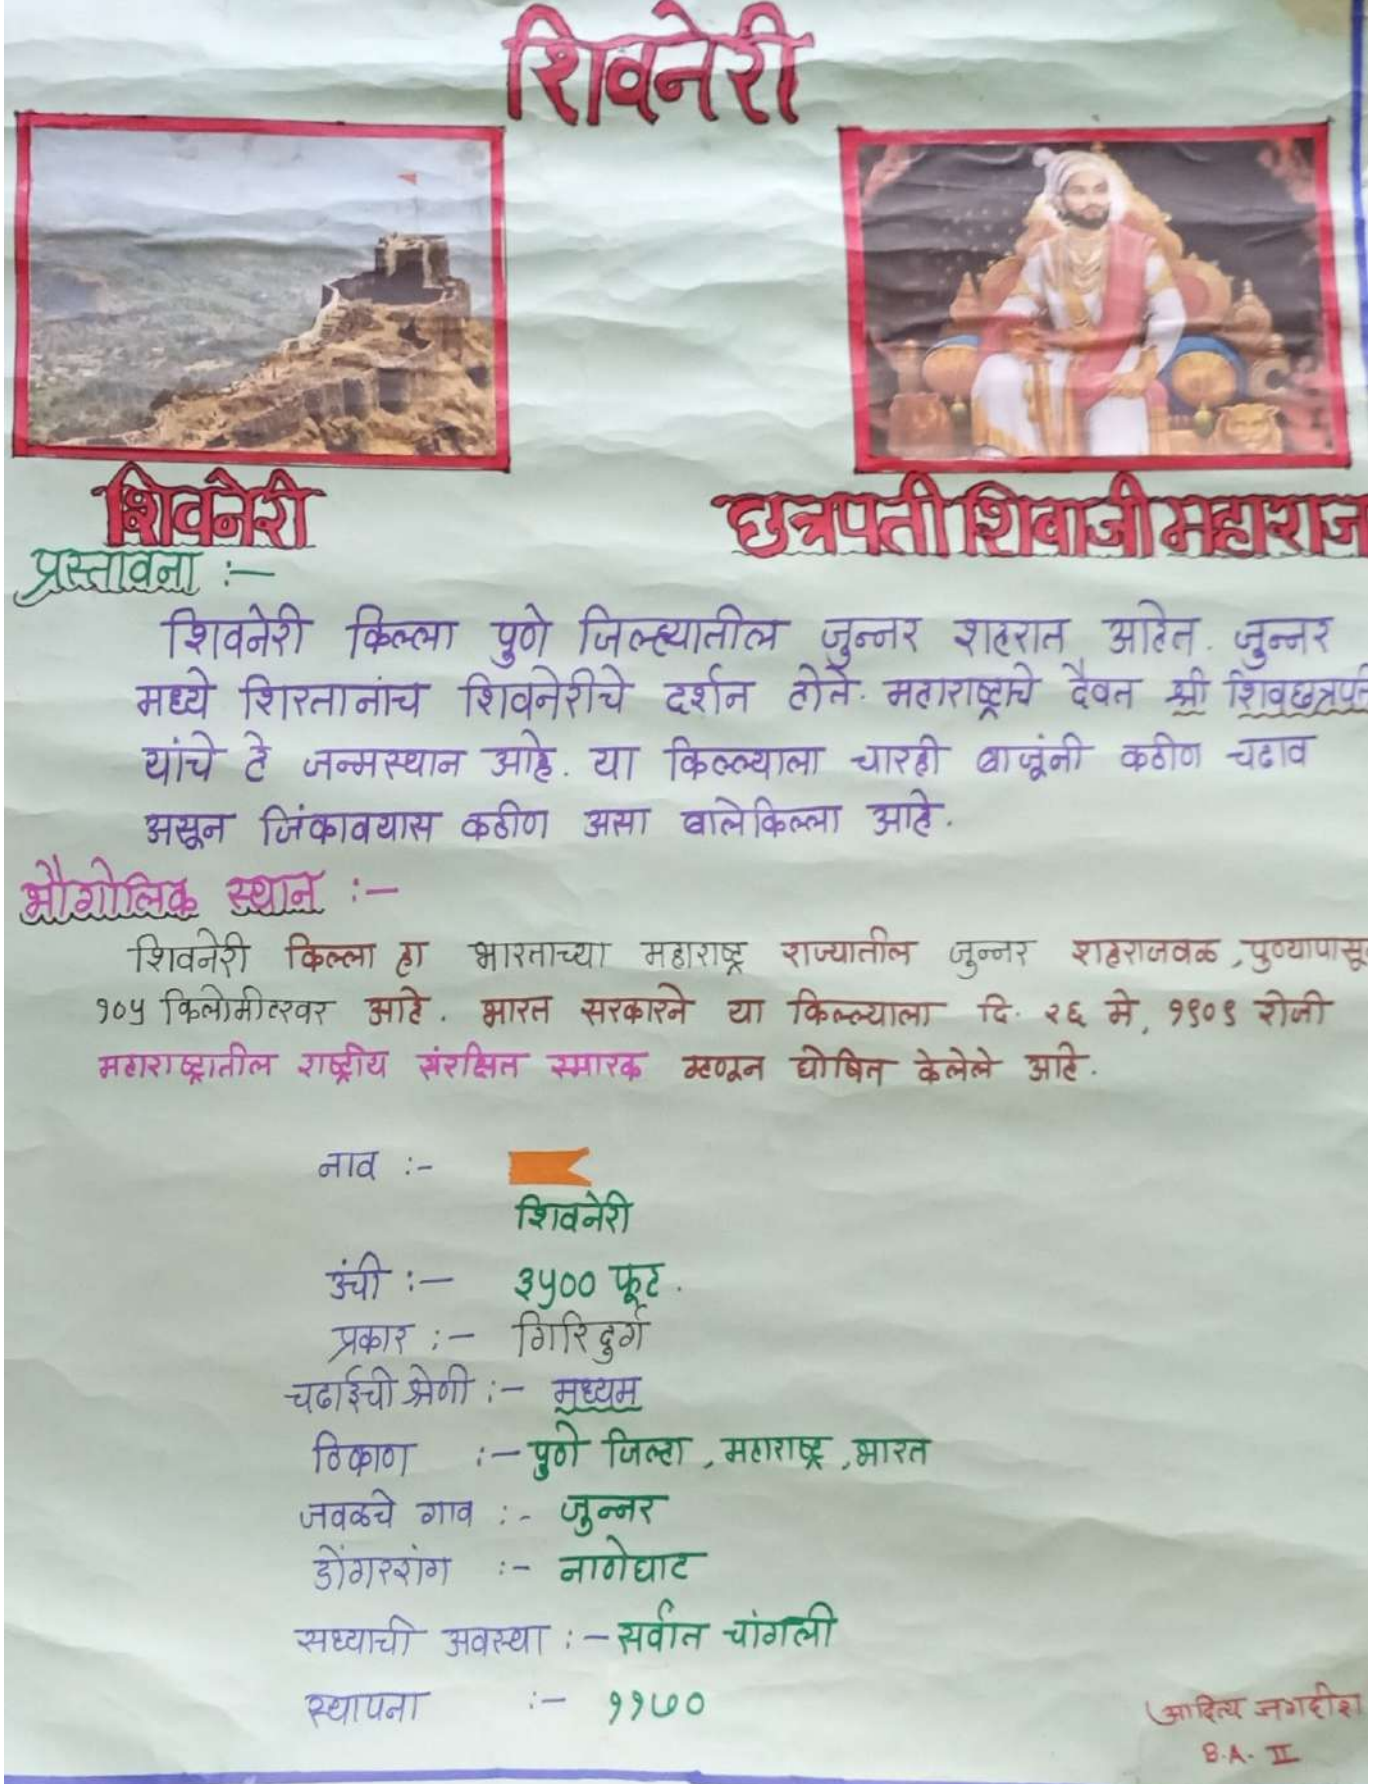 शिवनेरी
शिवनेरी
छत्रपती शिवाजी महाराज
प्रस्तावना :-
शिवनेरी किल्ला पुणे जिल्ह्यातील जुन्नर शहरात आहेत. जुन्नर
मध्ये शिरतानांच शिवनेरीचे दर्शन होते. महाराष्ट्राचे दैवत श्री शिवछत्रपती
यांचे हे जन्मस्थान आहे. या किल्ल्याला चारही बाजूंनी कठीण चढाव
असून जिंकावयास कठीण असा बालेकिल्ला आहे.
भौगोलिक स्थान :-
शिवनेरी किल्ला हा भारताच्या महाराष्ट्र राज्यातील जुन्नर शहराजवळ, पुण्यापासून
१०५ किलोमीटरवर आहे. भारत सरकारने या किल्ल्याला दि. २६ मे, १९०९ रोजी
महाराष्ट्रातील राष्ट्रीय संरक्षित स्मारक म्हणून घोषित केलेले आहे.
नाव :-
शिवनेरी
उंची :- ३५०० फूट.
प्रकार :- गिरिदुर्ग
चढाईची श्रेणी :- मध्यम
ठिकाण :- पुणे जिल्हा, महाराष्ट्र, भारत
जवळचे गाव :- जुन्नर
डोंगररांग :- नाणेघाट
सध्याची अवस्था :- सर्वात चांगली
स्थापना :- ११७०
आदित्य जगदीश
B.A. II